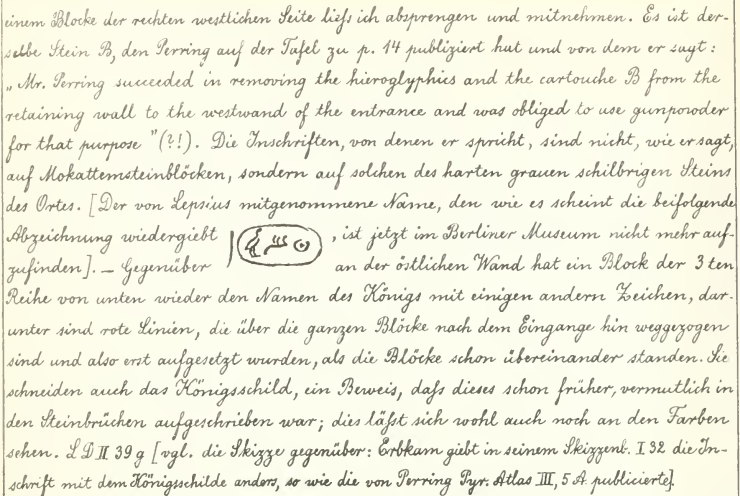 einem Blocke der rechten westlichen Seite liefs ich absprengen und mitnehmen. Es ist der-
selbe Stein B, den Perring auf der Tafel zu p. 14 publiziert hut und von dem er sagt:
„Mr. Perring succeeded in removing the hieroglyphics and the cartouche B from the
retaining wall to the westwand of the entrance and was obliged to use gunpowder
for that purpose "(?!). Die Inschriften, von denen er spricht, sind nicht, wie er sagt,
auf Mokattemsteinblöcken, sondern auf solchen des harten grauen schilbrigen Steins
des Ortes. [Der von Lepsius mitgenommene Name, den wie es scheint die beifolgende
Abzeichnung wiedergiebt , ist jetzt im Berliner Museum nicht mehr auf-
zufinden]. — Gegenüber an der östlichen Wand hat ein Block der 3 ten
Reihe von unten wieder den Namen des Königs mit einigen andern Zeichen, dar-
unter sind rote Linien, die über die ganzen Blöcke nach dem Eingange hin weggezogen
sind und also erst aufgesetzt wurden, als die Blöcke schon übereinander standen. Sie
schneiden auch das Königsschild, ein Beweis, dafs dieses schon früher, vermutlich in
den Steinbrüchen aufgeschrieben war; dies läfst sich wohl auch noch an den Farben
sehen. L D II 39 g [vgl. die Skizze gegenüber: Erbkam giebt in seinem Skizzenb. I 32 die In-
schrift mit dem Königsschilde anders, so wie die von Perring Pyr. Atlas III, 5 A. publicierte].